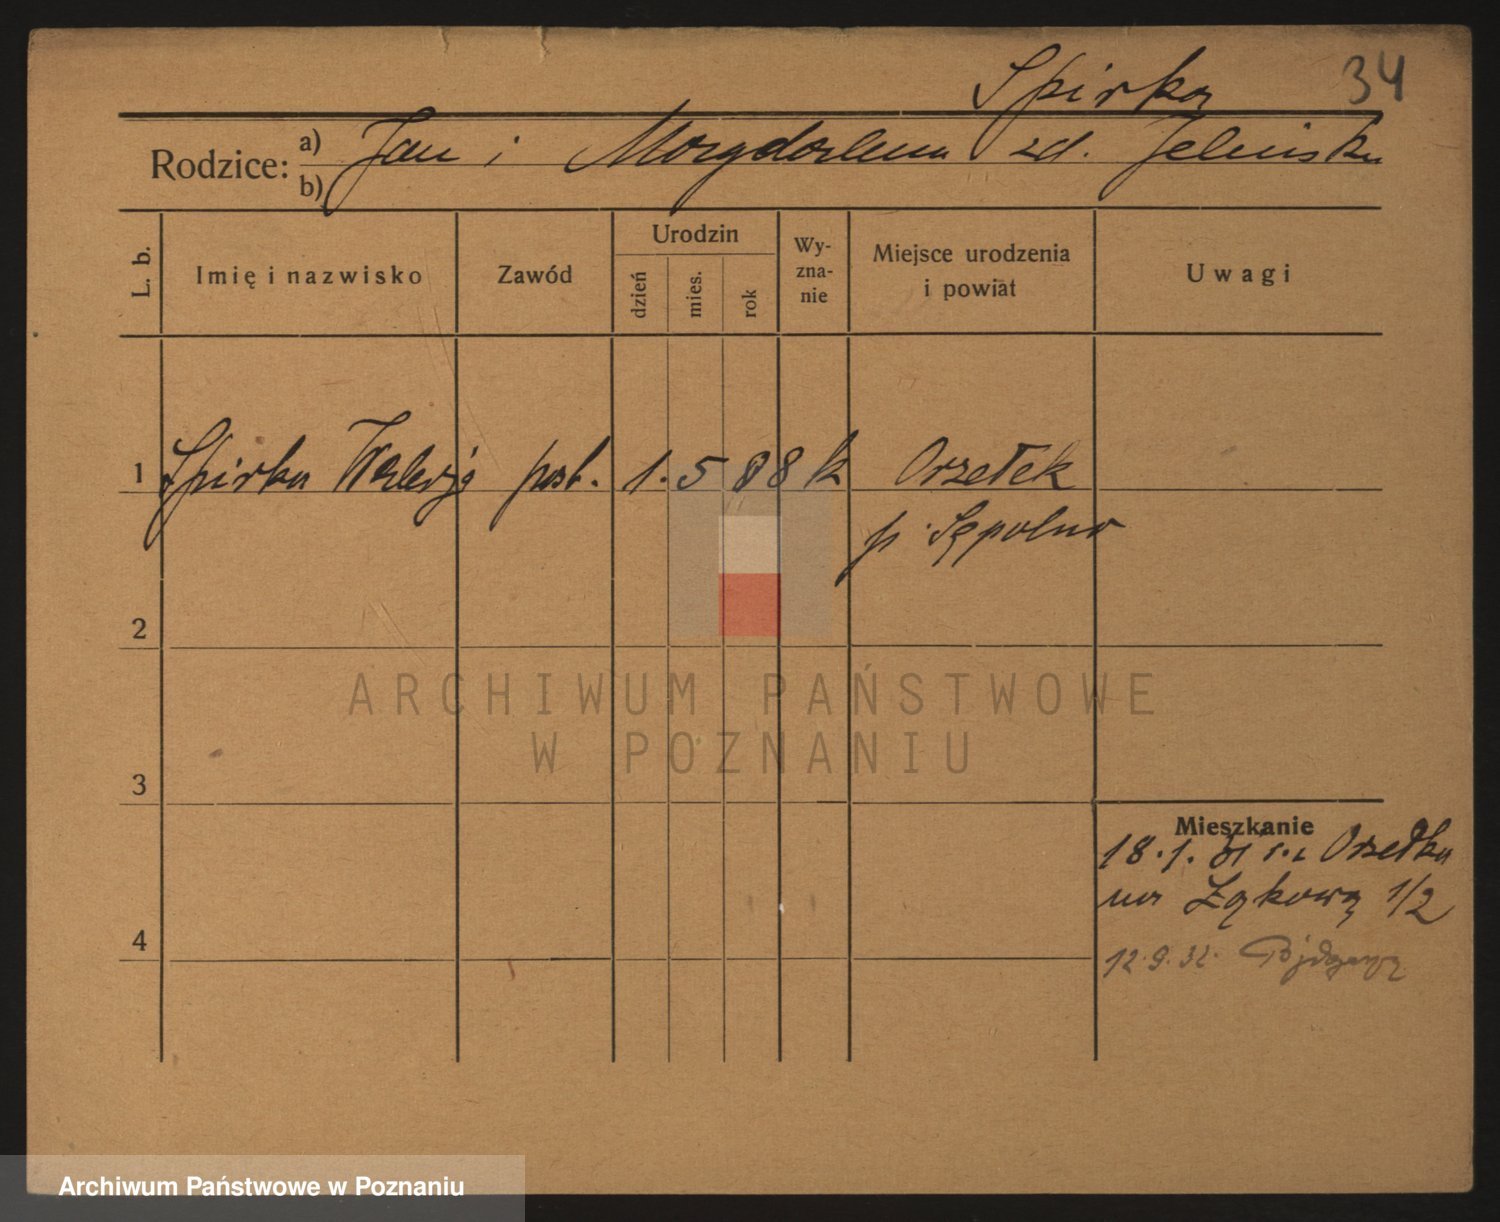 Spirka 34
Rodzice: a) Jan i Magdalena zd. Jelińska
b)
L. b. Imię i nazwisko Zawód Urodzin dzień mies. rok Wy-zna-nie Miejsce urodzenia i powiat Uwagi
1 Spirka Waleria 1. 5 88 k Orzełek
p. Sępolno
2
ARCHIWUM PAŃSTWOWE
W POZNANIU
3
Mieszkanie
18.1. 31 Orzełka
na Łąkową 1/2
4
12.9.32.
Archiwum Państwowe w Poznaniu